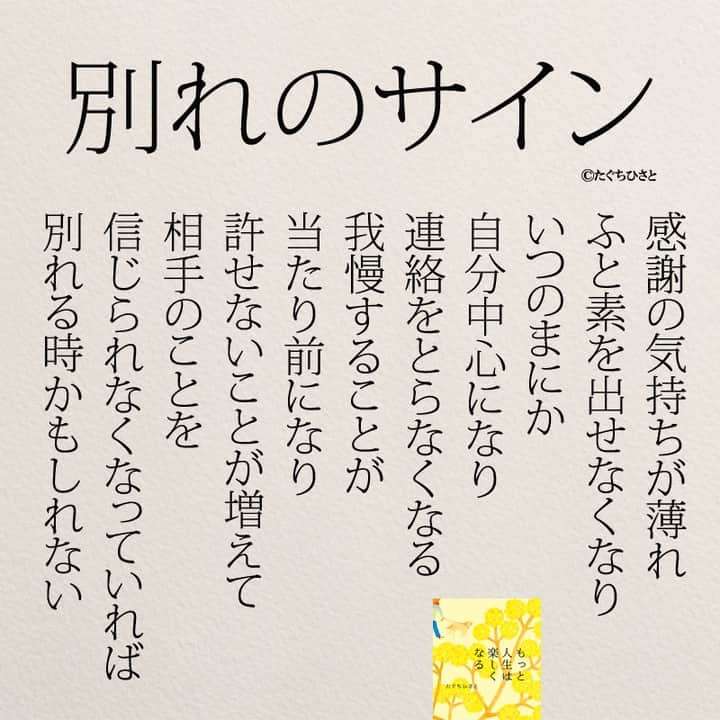 別れのサイン
©たぐちひさと
感謝の気持ちが薄れ
ふと素を出せなくなり
いつのまにか
自分中心になり
連絡をとらなくなる
我慢することが
当たり前になり
許せないことが増えて
相手のことを
信じられなくなっていれば
別れる時かもしれない
もっと
人生は
楽しく
なる
たぐちひさと